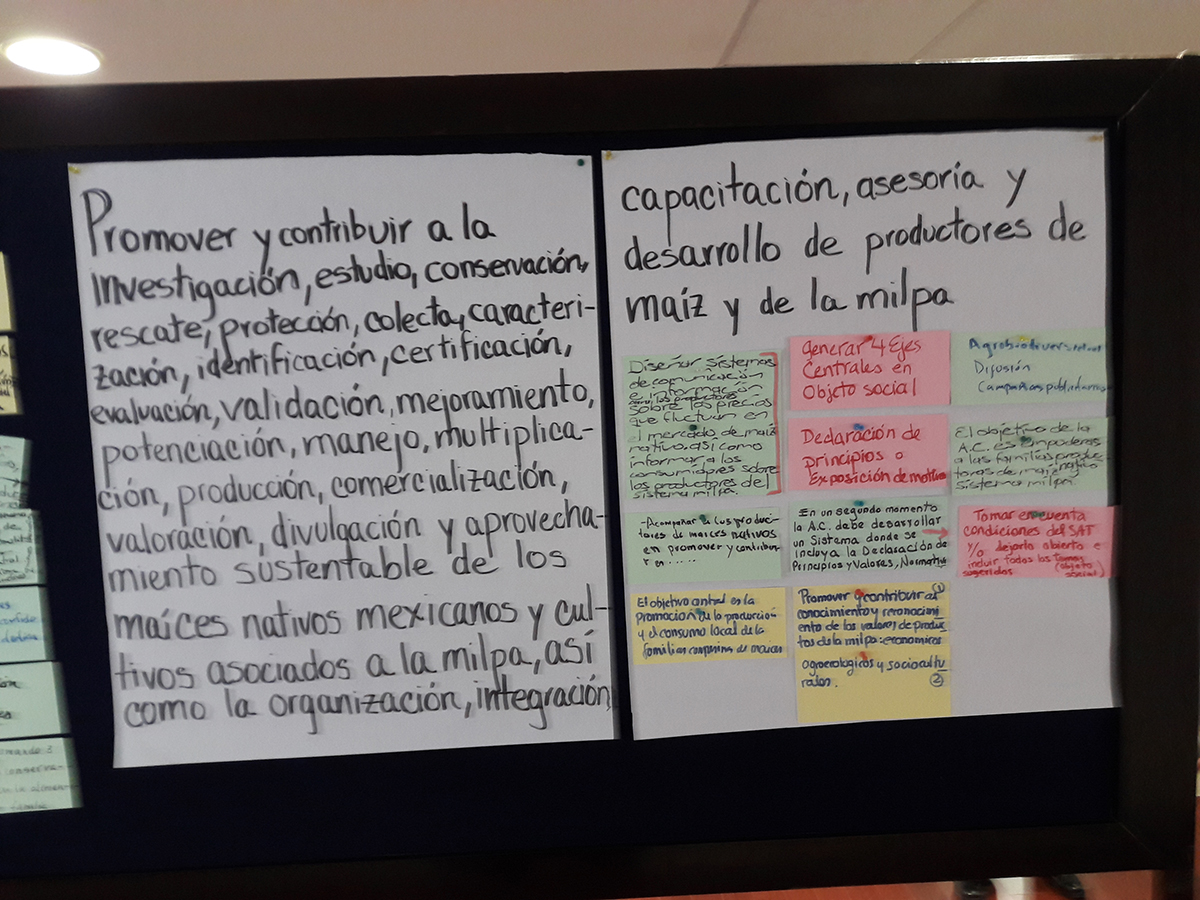 Promover y contribuir a la
investigación, estudio, conservación,
rescate, protección, colecta, caracteri-
zación, identificación, certificación,
evaluación, validación, mejoramiento,
potenciación, manejo, multiplica-
ción, producción, comercialización,
valoración, divulgación y aprovecha-
miento sustentable de los
maíces nativos mexicanos y cul-
tivos asociados a la milpa, así
como la organización, integración,
capacitación, asesoría y
desarrollo de productores de
maíz y de la milpa
Diseñar sistemas
de comunicación
e información
sobre los precios
que fluctuan en
el mercado de maíz
nativo, así como
informar a los
consumidores sobre
los productores del
sistema milpa.
Generar 4 Ejes
Centrales en
Objeto social
Agrobiodiversidad
Difusión
Campañas publicitarias
Declaración de
principios o
Exposición de motivos
El objetivo de la
A.C. es empoderar
a las familias produc-
toras de maíz nativo
sistema milpa
-Acompañar a los produc-
tores de maíces nativos
en promover y contribuir
y en.....
En un segundo momento
la A.C. debe desarrollar
un Sistema donde se
incluya la Declaración de
Principios y Valores, Normativa
Tomar en cuenta
condiciones del SAT
y/o dejarlo abierto e
incluir todos los temas
sugeridos (objeto
social)
El objetivo central es la
promoción de la producción
y el consumo local de la
familias campesinas de maíces
Promover y contribuir al ①
conocimiento y reconocimi
ento de los valores de produc
tos de la milpa: economicos
agroecologicos y sociocultu
rales. ②